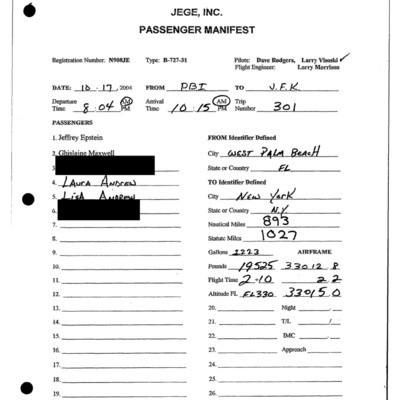 JEGE, INC.
PASSENGER MANIFEST
Registration Number: N908JE Type: B-727-31 Pilots: Dave Rodgers, Larry Visoski ✓
Flight Engineer: Larry Morrison
DATE: 10-17, 2004 FROM PBI TO J.F.K.
Departure Time 8:04 AM PM Arrival Time 10:15 AM PM Trip Number 301
PASSENGERS
1. Jeffrey Epstein FROM Identifier Defined
2. Ghislaine Maxwell City WEST PALM BEACH
3. State or Country FL
4. LAURA ANDREW TO Identifier Defined
5. LISA ANDREW City NEW YORK
6. State or Country N.Y
7. Nautical Miles 893
8. Statute Miles 1027
9. Gallons 1223 AIRFRAME
10. Pounds 19525 33012 8
11. Flight Time 2+10 2 2
12. Altitude FL FL330 33015 0
13. 20. Night
14. 21. T/L /
15. 22. IMC
16.
17. 23. Approach
18. 25.
19. 26.